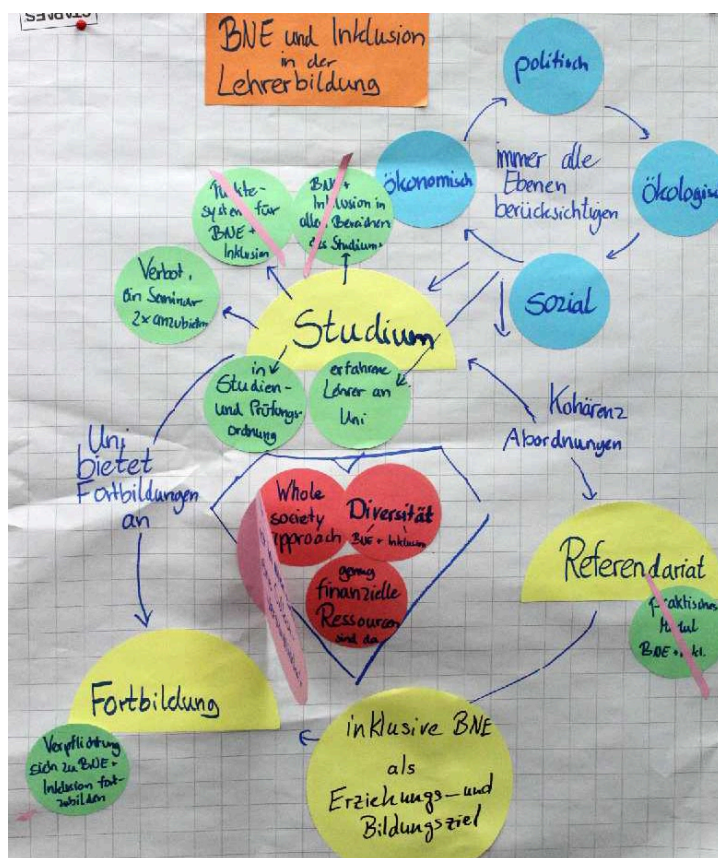 STAPLES
BNE und Inklusion
in der
Lehrerbildung
politisch
ökonomisch
immer alle
Ebenen
berücksichtigen
ökologisch
sozial
Punkte-
system für
BNE +
Inklusion
BNE +
Inklusion in
allen Bereichen
des Studiums
Verbot,
ein Seminar
2x anzubieten
Studium
in
Studien-
und Prüfungs-
ordnung
erfahrene
Lehrer an
Uni
Kohärenz
Abordnungen
Uni
bietet
Fortbildungen
an
Whole
society
approach
Diversität
BNE + Inklusion
genug
finanzielle
Ressourcen
sind da
Referendariat
praktisches
Modul
BNE + Inkl.
Fortbildung
Verpflichtung
sich zu BNE +
Inklusion fort-
zubilden
inklusive BNE
als
Erziehungs- und
Bildungsziel